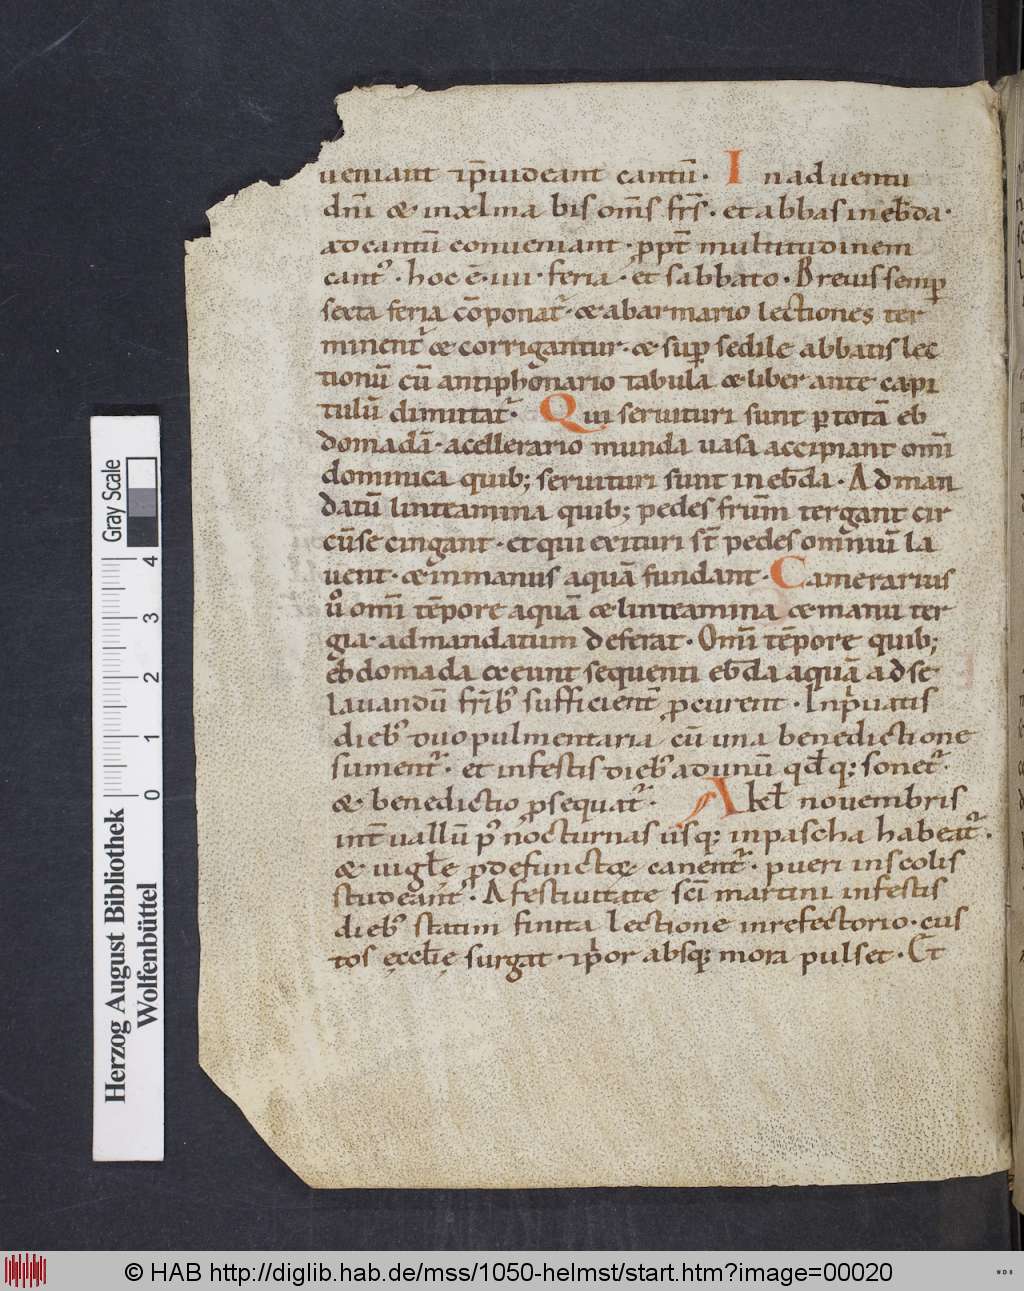 ueniant ⁊ p̄uideant cantū· In aduentu
dn̄i & in xl.ma bis om̄s fr̄s· et abbas in eb̄da·
ad cantū conueniant· ꝓpt̄ multitudinem
cant᷒· hoc ē· iiii· feria· et sabbato· Breuis semꝑ
sexta feria cōponat᷑· & ab armario lectiones ter
minent᷑ & corrigantur· & suꝑ sedile abbatis lec
tionū cū antiphonario tabula & liber ante capi
tulū dimittat᷑· Qui seruituri sunt ꝑ totā eb
domadā· a cellerario munda uasa accipiant om̄i
dominica quib; seruituri sunt in eb̄da· Ad man
datū linteamina quib; pedes frūm tergant cir
cūse cingant· et qui exituri st̄ pedes omniū la
uent· & in manus aquā fundant· Camerarius
ū om̄i tēpore aquā & linteamina & manu ter
gia· ad mandatum deferat· Om̄i tēpore quib;
eb̄domada exeunt sequenti eb̄da aquā ad se
lauandū fr̄ib᷒ sufficient̄ ꝓcurent· In p̄uatis
dieb᷒ duo pulmentaria cū una benedictione
sument᷑· et in festis dieb᷒ ad unū qd̄q; sonet᷑·
& benedictio ꝓsequat᷑· A kel̄ nouembris
int̄uallū p᷒ nocturnas usq; in pascha habeat᷑·
& uigl̄e ꝓ defunctis canent᷑· pueri in scolis
studeant᷑· A festiuitate sc̄i martini in festis
dieb᷒ statim finita lectione in refectorio· cus
tos ęccl̄ię surgat· ⁊ p̄or absq; mora pulset· Et
Gray Scale
4 3 2 1 0
Herzog August Bibliothek
Wolfenbüttel
© HAB http://diglib.hab.de/mss/1050-helmst/start.htm?image=00020